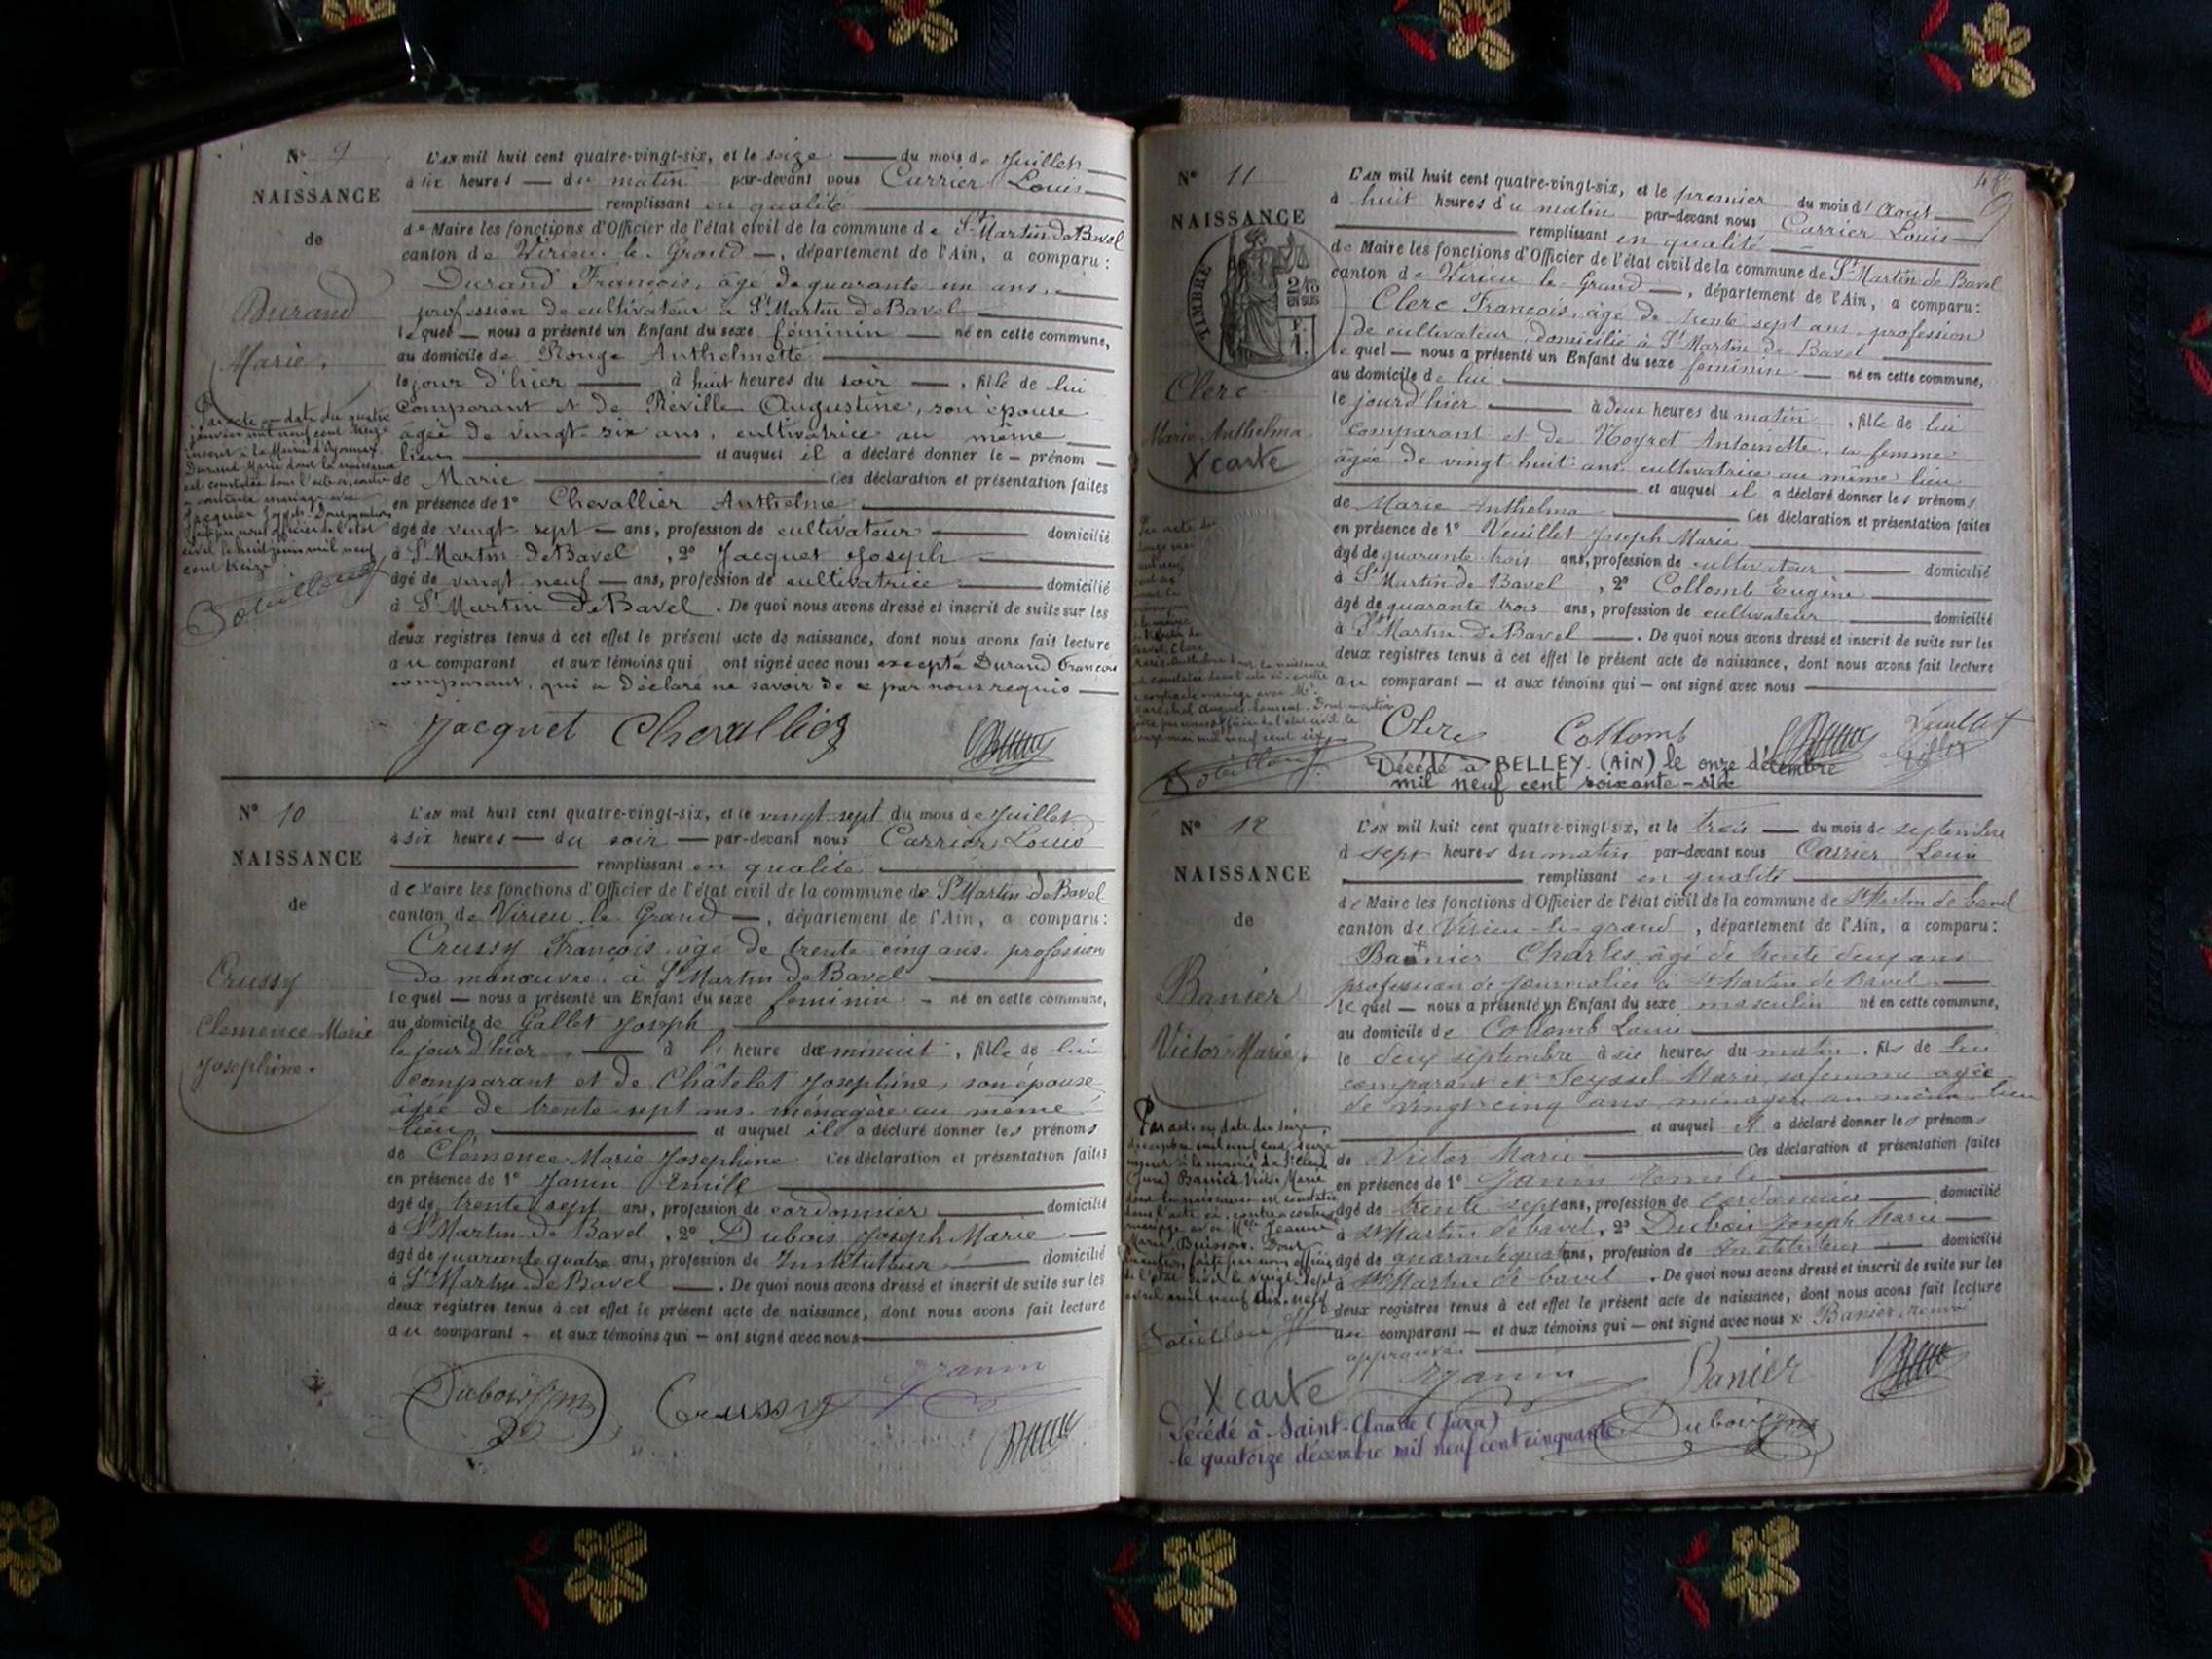 N° 9
NAISSANCE
de
Durand
Marie.
L'AN mil huit cent quatre-vingt-six, et le seize du mois de Juillet
à six heures du matin par-devant nous Carrier Louis
remplissant en qualité
de Maire les fonctions d'Officier de l'état civil de la commune de St Martin de Bavel
canton de Virieu le Grand, département de l'Ain, a comparu:
Durand François, âgé de quarante un ans,
profession de cultivateur à St Martin de Bavel
lequel nous a présenté un Enfant du sexe féminin né en cette commune,
au domicile de Rouge Anthelmette
le jour d'hier à huit heures du soir, fille de lui
comparant et de Réville Augustine, son épouse
âgée de vingt-six ans, cultivatrice au même
lieu et auquel il a déclaré donner le prénom
de Marie Ces déclaration et présentation faites
en présence de 1° Chevallier Anthelme
âgé de vingt sept ans, profession de cultivateur domicilié
à St Martin de Bavel, 2° Jacquet Joseph
âgé de vingt neuf ans, profession de cultivatrice domicilié
à St Martin de Bavel. De quoi nous avons dressé et inscrit de suite sur les
deux registres tenus à cet effet le présent acte de naissance, dont nous avons fait lecture
au comparant et aux témoins qui ont signé avec nous excepté Durand François
comparant, qui a déclaré ne savoir de ce par nous requis
Par acte en date du quatre
janvier mil neuf cent treize
inscrit à la Mairie d'Oyonnax
Durand Marie dont la naissance
est constatée dans l'acte ci-contre
a contracté mariage avec
Jacquier Joseph. Dont mention
faite par nous officier de l'état
civil le huit juin mil neuf
cent treize
Jacquet Chevallier
N° 10
NAISSANCE
de
Crussy
Clemence Marie
Josephine.
L'AN mil huit cent quatre-vingt-six, et le vingt-sept du mois de Juillet
à six heures du soir par-devant nous Carrier Louis
remplissant en qualité
de Maire les fonctions d'Officier de l'état civil de la commune de St Martin de Bavel
canton de Virieu le Grand, département de l'Ain, a comparu:
Crussy François âgé de trente cinq ans profession
de manœuvre à St Martin de Bavel
lequel nous a présenté un Enfant du sexe feminin né en cette commune,
au domicile de Gallet Joseph
le jour d'hier à l'heure de minuit, fille de lui
comparant et de Châtelet Josephine, son épouse
âgée de trente-sept ans ménagère au même
lieu et auquel il a déclaré donner les prénoms
de Clemence Marie Josephine Ces déclaration et présentation faites
en présence de 1° Janin Emile
âgé de trente sept ans, profession de cordonnier domicilié
à St Martin de Bavel, 2° Dubois Joseph Marie
âgé de quarante quatre ans, profession de Instituteur domicilié
à St Martin de Bavel. De quoi nous avons dressé et inscrit de suite sur les
deux registres tenus à cet effet le présent acte de naissance, dont nous avons fait lecture
au comparant et aux témoins qui ont signé avec nous
Dubois Jm Crussy Janin
N° 11
NAISSANCE
TIMBRE
2/10
EN SUS
Clerc
Marie Anthelma
X carte
L'AN mil huit cent quatre-vingt-six, et le premier du mois d'Août
à huit heures du matin par-devant nous Carrier Louis
remplissant en qualité
de Maire les fonctions d'Officier de l'état civil de la commune de St Martin de Bavel
canton de Virieu le Grand, département de l'Ain, a comparu:
Clerc François, âgé de trente sept ans profession
de cultivateur, domicilié à St Martin de Bavel
lequel nous a présenté un Enfant du sexe feminin né en cette commune,
au domicile de lui
le jour d'hier à deux heures du matin, fille de lui
comparant et de Noyret Antoinette, sa femme
âgée de vingt huit ans cultivatrice au même lieu
et auquel il a déclaré donner les prénoms
de Marie Anthelma Ces déclaration et présentation faites
en présence de 1° Veuillet Joseph Marie
âgé de quarante trois ans, profession de cultivateur domicilié
à St Martin de Bavel, 2° Collomb Eugène
âgé de quarante trois ans, profession de cultivateur domicilié
à St Martin de Bavel. De quoi nous avons dressé et inscrit de suite sur les
deux registres tenus à cet effet le présent acte de naissance, dont nous avons fait lecture
au comparant et aux témoins qui ont signé avec nous
Clerc Collomb Veuillet
Décédé à BELLEY (AIN) le onze décembre
mil neuf cent soixante-six
N° 12
NAISSANCE
de
Banier
Victor Marie.
L'AN mil huit cent quatre-vingt-six, et le trois du mois de septembre
à sept heures du matin par-devant nous Carrier Louis
remplissant en qualité
de Maire les fonctions d'Officier de l'état civil de la commune de St Martin de bavel
canton de Virieu-le-grand, département de l'Ain, a comparu:
Banier Charles âgé de trente deux ans
profession de journalier à St Martin de Bavel
lequel nous a présenté un Enfant du sexe masculin né en cette commune,
au domicile de Collomb Louis
le deux septembre à six heures du matin, fils de lui
comparant et Seyssel Marie sa femme agée
de vingt cinq ans ménagère au même lieu
et auquel il a déclaré donner les prénoms
de Victor Marie Ces déclaration et présentation faites
en présence de 1° Janin Emile
âgé de trente sept ans, profession de cordonnier domicilié
à St Martin de bavel, 2° Dubois Joseph Marie
âgé de quarante quatre ans, profession de Instituteur domicilié
à St Martin de bavel. De quoi nous avons dressé et inscrit de suite sur les
deux registres tenus à cet effet le présent acte de naissance, dont nous avons fait lecture
au comparant et aux témoins qui ont signé avec nous x Banier, renvoi
approuvé.
Par acte en date du seize
décembre mil neuf cent
à la mairie de St Claude
(Jura) Banier Victor Marie
dont la naissance est constatée
dans l'acte ci-contre a contracté
mariage avec Mlle Jeanne
Marie Buisson. Dont
mention faite par nous officier
de l'état civil le vingt-sept
avril mil neuf cent dix-neuf
Janin Banier
X carte
Décédé à Saint-Claude (Jura)
le quatorze décembre mil neuf cent cinquante
Dubois Jm